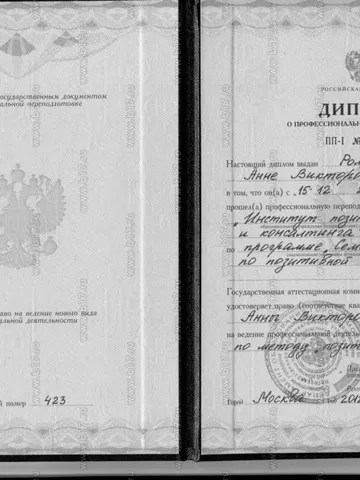 осударственным документом
альной переподготовке
аво на ведение нового вида
альной деятельности
й номер 423
РОССИЙСКА
ДИП
О ПРОФЕССИОНАЛЬН
ПП-I №
Настоящий диплом выдан Ром
Анне Викторо
в том, что он(а) с „15 12
прошел(а) профессиональную перепод
„Институт пози
и консалтинга
по программе „Сем
по позитивной
Государственная аттестационная коми
удостоверяет право (соответствие ква
Анны Виктор
на ведение профессиональной деятель
по методу позит
Город Москва год 201
www.b17.ru